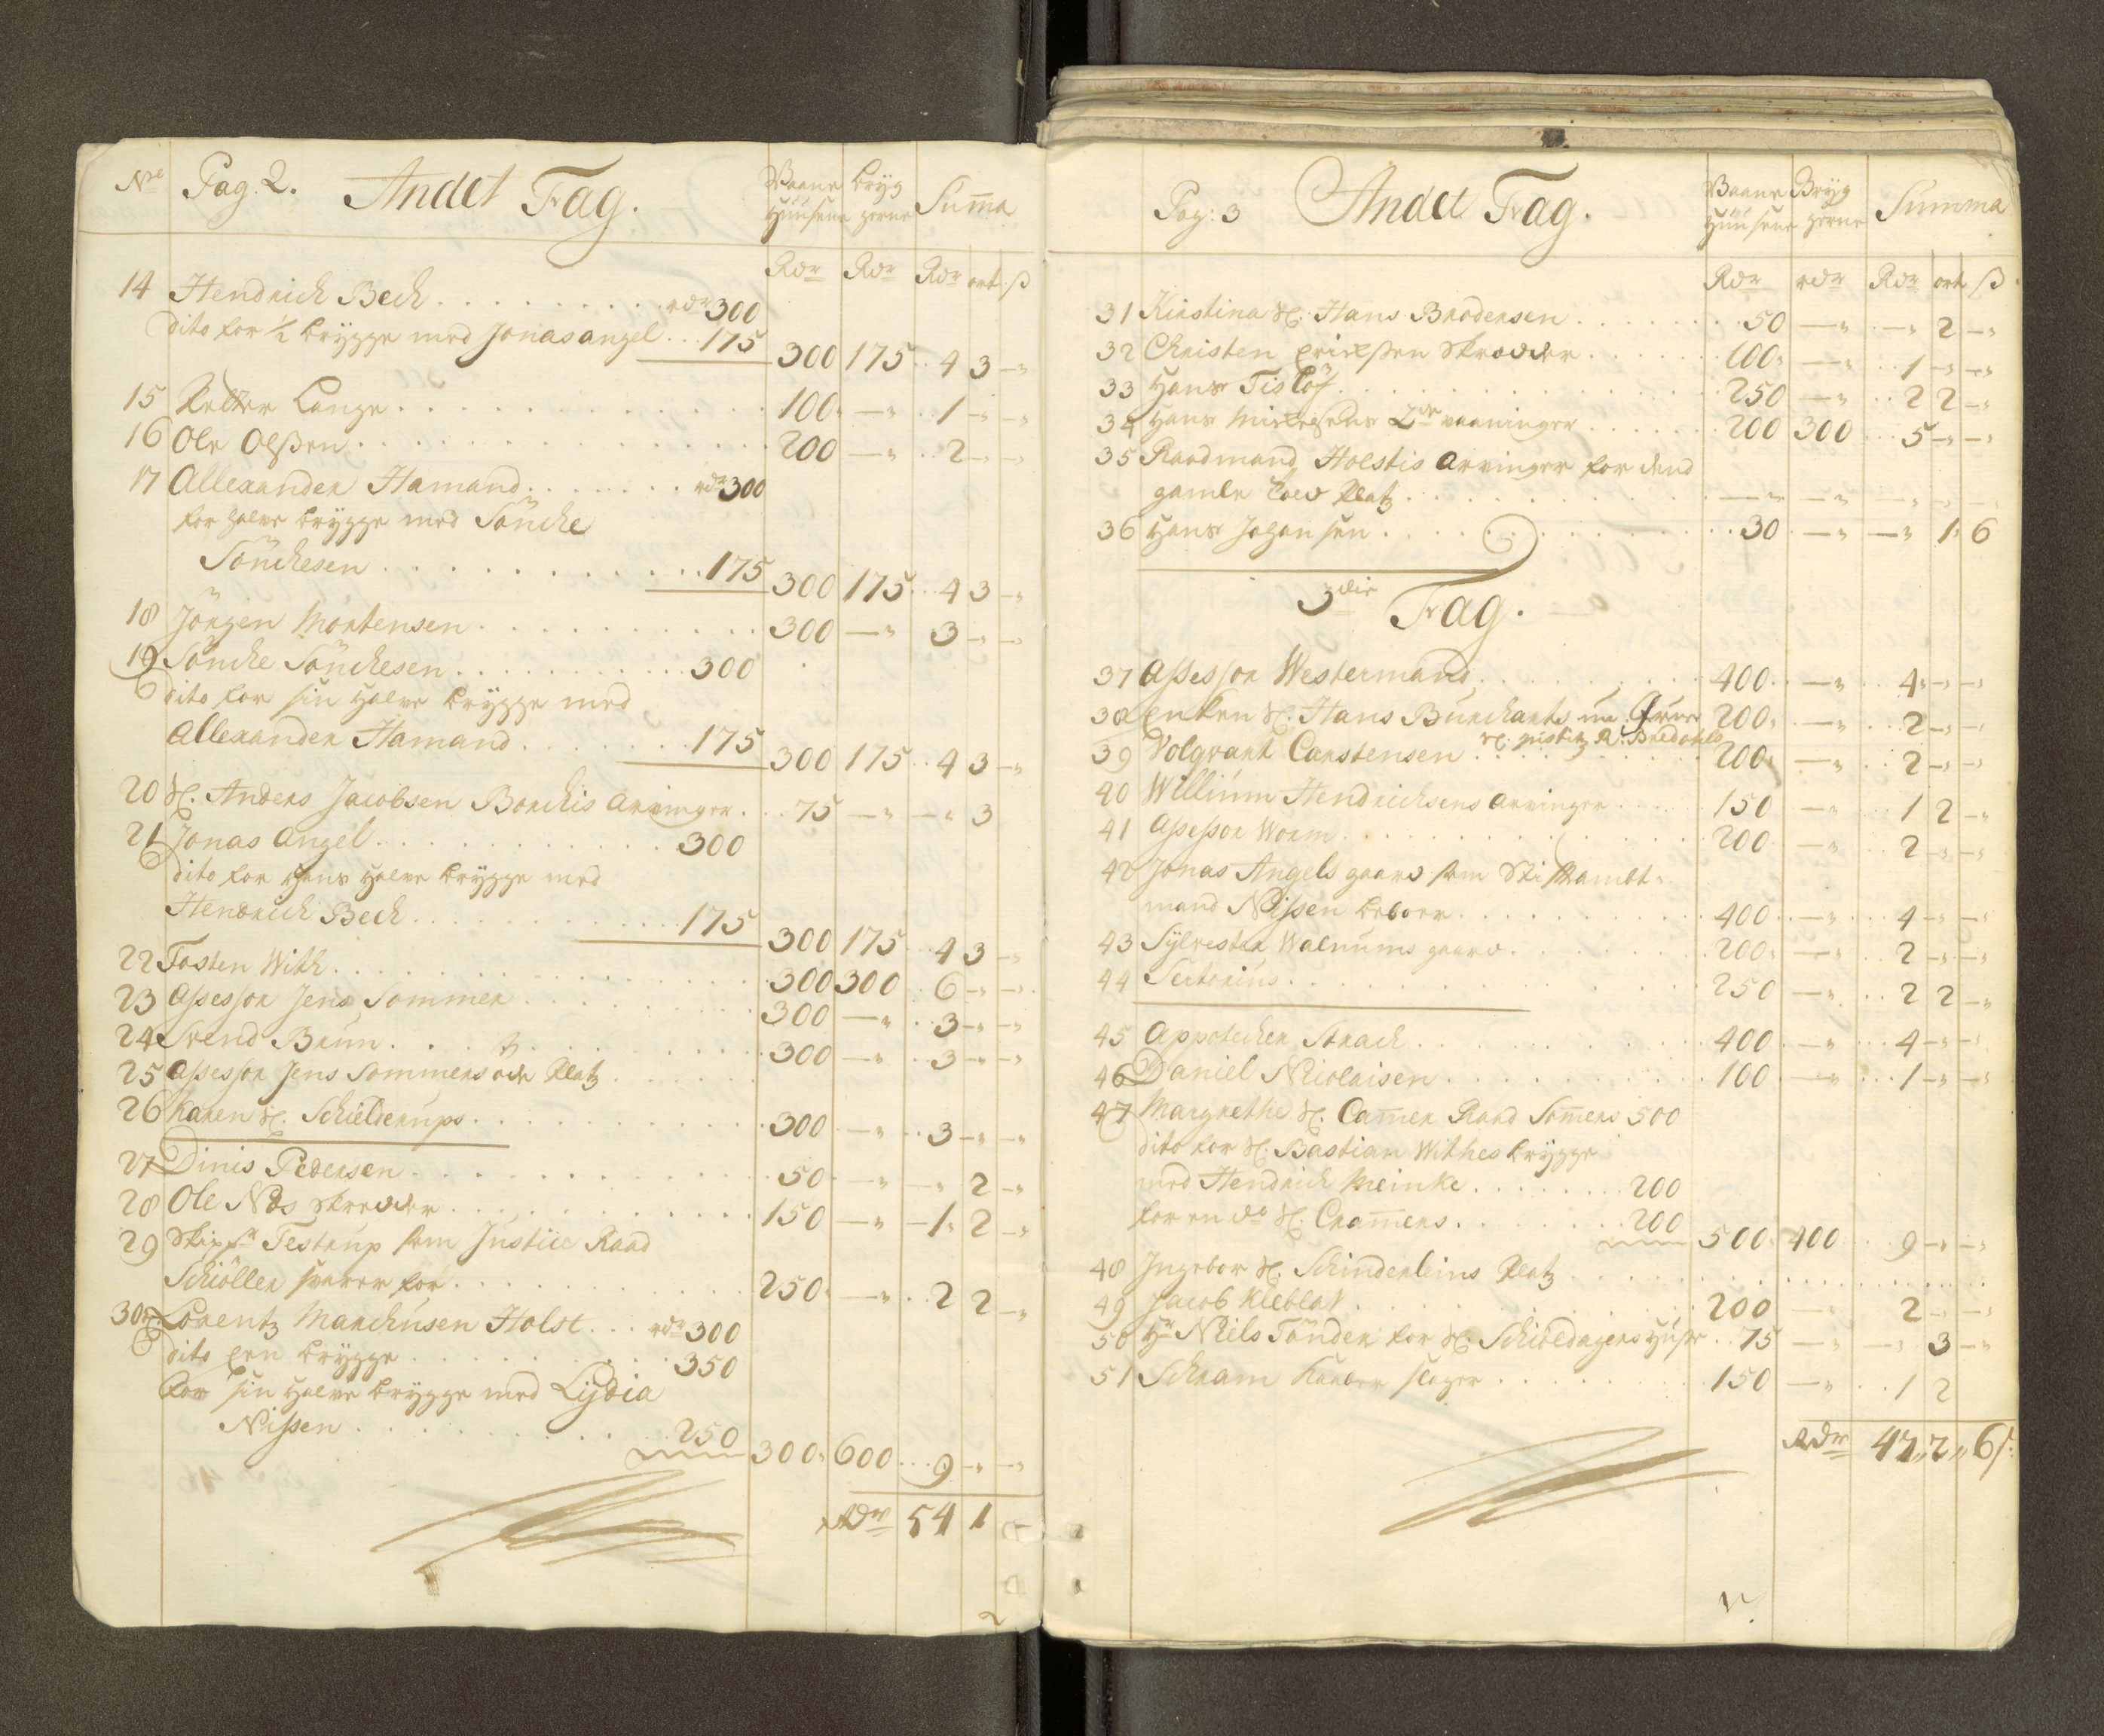 No Pag. 2. Andet Fag. Vaane Huusene Bryggerne Summa
Rdr Rdr Rdr ort ß
14 Hendrich Bech . . . rdr 300
dito for ½ brygge med Jonas angel . . 175 300 175 4 3 -"
15 Petter Lange . . . 100 -" 1 -" -"
16 Ole Olssen . . . 200 -" 2 -" -"
17 Allexander Hamand . . . rdr 300
for halve brygge med Söncke
Sönchesen . . . 175 300 175 4 3 -"
18 Jörgen Mortensen . . . 300 -" 3 -" -"
19 Söncke Sönchesen . . . 300
dito for sin halve brygge med
Allexander Hamand . . . 175 300 175 4 3 -"
20 Sl. Anders Jacobsen Borchis arvinger . . 75 -" -" 3
21 Jonas Angel . . . 300
dito for hans halve brygge med
Hendrich Bech . . . 175 300 175 4 3 -"
22 Tosten With . . . 300 300 6 -" -"
23 Assessor Jens Sommer . . . 300 -" 3 -" -"
24 Svend Bruun . . . 300 -" 3 -" -"
25 Assessor Jens Sommers øde Platz . . .
26 Karen Sl. Schielderups . . . 300 -" 3 -" -"
27 Dinis Pedersen . . . 50 -" -" 2 -"
28 Ole Næs skreder . . . 150 -" 1 2 -"
29 Skippr Testrup som Justice Raad
Schöller svarer for . . . 250 -" 2 2 -"
30 Lorentz Marchusen Holst . . . rdr 300
dito een brygge . . . 350
for sin halve brygge med Lydia
Nissen . . . 250 300 600 9 -" -"
Rdr 54 1 -
2
Pag: 3 Andet Fag. Vaane Huusene Bryggerne Summa
Rdr rdr Rdr ort ß
31 Kirstina Sl. Hans Brodersen . . . 50 -" -" 2 -"
32 Christen Erichssen skræder . . . 100 -" 1 -" -"
33 Hans Tislöf . . . 250 -" 2 2 -"
34 Hans Mickelsens 2de vaaninger . . . 200 300 5 -" -"
35 Raadmand Holstis arvinger for dend
gamle Platz . . . -" -" -" -" -"
36 Hans Johansen . . . 30 -" -" 1 6
3die Fag.
37 Assessor Westermand . . . 400 -" 4 -" -"
38 Enken Sl. Hans Burchards 200 -" 2 -" -"
Sl. Justitz R: Bredahls
39 Volqvart Carstensen . . . 200 -" 2 -" -"
40 Willium Hendrichsens arvinger . . . 150 -" 1 2 -"
41 Assessor Worm . . . 200 -" 2 -" -"
42 Jonas Angels gaard som Stiftambt-
mand Nissen beboer . . . 400 -" 4 -" -"
43 Sylvester Walnums gaard . . . 200 -" 2 -" -"
44 Sertorius . . . 250 -" 2 2 -"
45 Appotecker Strach . . . 400 -" 4 -" -"
46 Daniel Nicolaisen . . . 100 -" 1 -" -"
47 Margrethe Sl. Cammer Raad Sommers 500
dito for Sl. Bastian Withes brygge
med Hendrich Meinke . . . 200
for en do Sl. Crammers . . . 200 500 400 9 -" -"
48 Ingebor Sl. Schinderleins Platz . . .
49 Jacob Kieblat . . . 200 -" 2 -" -"
50 Hr Niels Tönder for Sl. Schioldagers Huuse . . 75 -" -" 3 -"
51 Schram Kaaber slager . . . 150 -" 1 2
Rdr 47 " 2 " 6 ß: